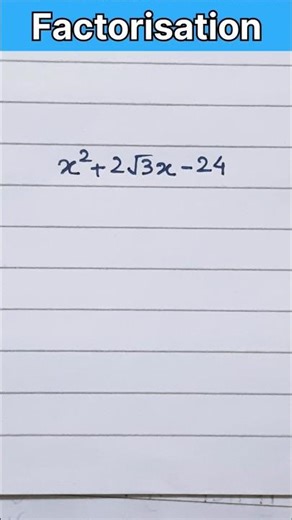 Factorisation
x²+2√3x-24